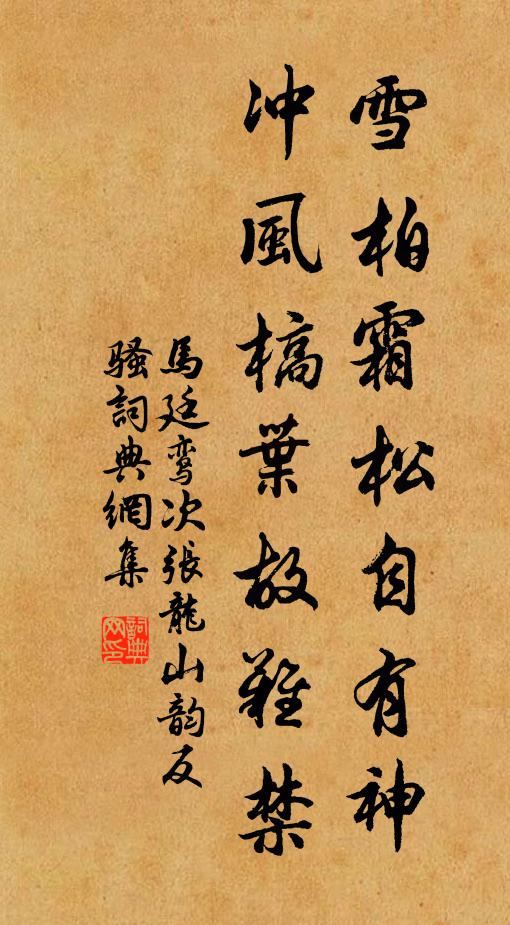 雪柏霜松自有神
冲風槁葉故難禁
馬廷鸞次張龍山韵反
騷詞典網集
詞典网印